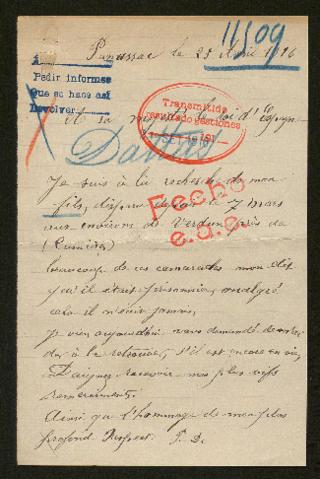 11509
Panassac le 25 Avril 1916
Pedir informes
Que se haos asi
Devolver
et sa majesté le Roi d'Espagne
Transmitido
resultado gestiones
Dattas
Je suis à la recherche de mon
fils, disparu depuis le 7 mars
aux environs de Verdun près de
(Cumières)
Fecho
e.a.c.
beaucoup de ces camarades mon dit
qu'il était prisonnier, malgré
cela il n'écrit jamais,
Je vien aujourdhui vous demandé de m'aider
à le retrouver, s'il est encore en vie,
Daignez recevoir mes plus vifs
remerciements.
Ainsi que l'hommage de mon plus
profond Respect. P. D.